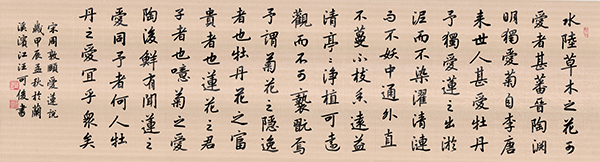 水陸草木之花可
愛者甚蕃晉陶淵
明獨愛菊自李唐
来世人甚愛牡丹
予獨愛蓮之出淤
泥而不染濯清漣
而不妖中通外直
不蔓不枝香遠益
清亭〻淨植可遠
觀而不可褻翫焉
予謂菊花之隱逸
者也牡丹花之富
貴者也蓮花之君
子者也噫菊之愛
陶後鮮有聞蓮之
愛同予者何人牡
丹之愛宜乎衆矣
宋周敦頤愛蓮説
歲甲辰孟秋於蘭
溪濱江汪可俊書